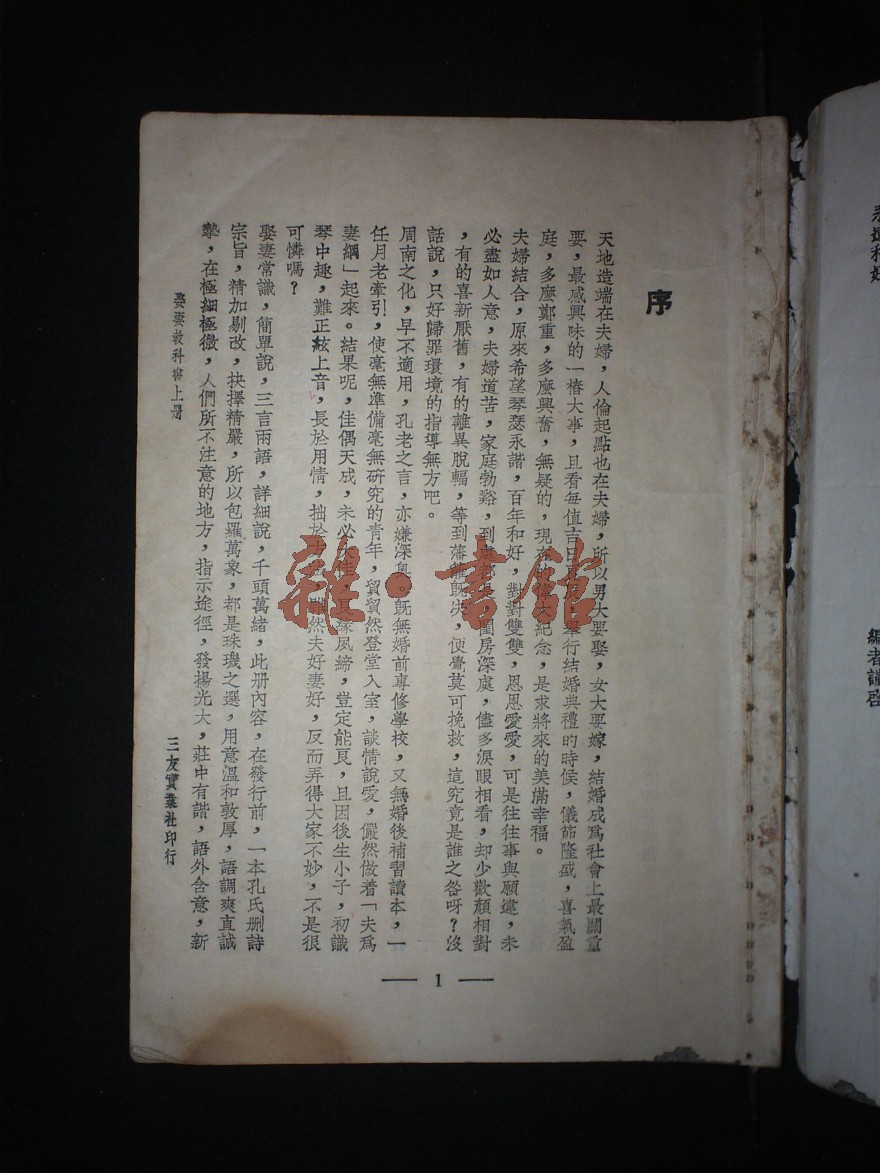 序
天地造端在夫婦，人倫起點也在夫婦，所以男大要娶，女大要嫁，結婚成爲社會上最關重
要，最感興味的一樁大事，且看每值吉日舉行結婚典禮的時候，儀節隆盛，喜氣盈
庭，多麼鄭重，多麼興奮，無疑的，現在紀念，是求將來的美滿幸福。
夫婦結合，原來希望琴瑟永諧，百年和好，對對雙雙，恩恩愛愛，可是往往事與願違，未
必盡如人意，夫婦道苦，家庭勃谿，到閨房深處，儘多淚眼相看，却少歡顏相對
，有的喜新厭舊，有的離異脫輻，等到藩籬旣决，便覺莫可挽救，這究竟是誰之咎呀？沒
話說，只好歸罪環境的指導無方吧。
周南之化，早不適用，孔老之言，亦嫌深奥，旣無婚前專修學校，又無婚後補習讀本，一
任月老牽引，使毫無準備毫無研究的青年，貿貿然登堂入室，談情說愛，儼然做着「夫爲
妻綱」起來。結果呢，佳偶天成，未必夙締，豈定能良，且因後生小子，初識
琴中趣，難正絃上音，長於用情，拙於然夫好妻好，反而弄得大家不妙，不是很
可憐嗎？
娶妻常識，簡單說，三言兩語，詳細說，千頭萬緒，此册內容，在發行前，一本孔氏删詩
宗旨，精加剔改，抉擇精嚴，所以包羅萬象，都是珠璣之選，用意溫和敦厚，語調爽直誠
摯，在極細極微，人們所不注意的地方，指示途徑，發揚光大，莊中有諧，語外含意，新
娶妻教科書上册
三友實業社印行
— 1 —
永遠和好
編者謹啓
雜·書館